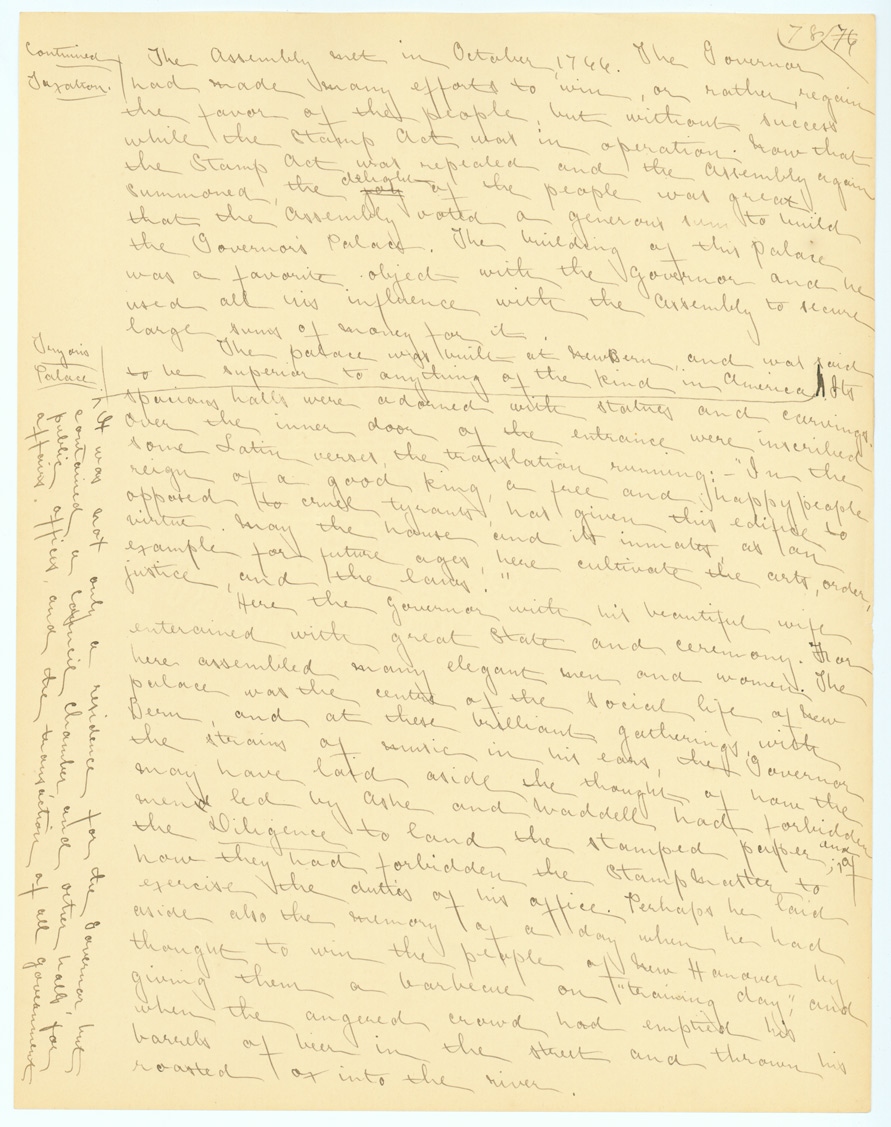 78 76
Continued
Taxation.
The Assembly met in October, 1766. The Governor
had made many efforts to win, or rather, regain
the favor of the people, but without success
while the Stamp Act was in operation. Now that
the Stamp Act was repealed and the Assembly again
delight
summoned, the joy of the people was great
that the Assembly voted a generous sum to build
the Governor's Palace. The building of this palace
was a favorite object with the Governor and he
used all his influence with the Assembly to secure
large sums of money for it.
Tryon's
Palace.
The palace was built at NewBern and was said
to be superior to anything of the kind in America. Its
spacious halls were adorned with statues and carvings.
Over the inner door of the entrance were inscribed
some Latin verses, the translation running:- "In the
reign of a good king, a free and happy people
opposed to cruel tyrants, has given this edifice to
virtue. May the house and its inmates, as an
example for future ages, here cultivate the arts, order,
justice, and the laws."
Here the Governor with his beautiful wife
entertained with great state and ceremony. For
here assembled many elegant men and women. The
palace was the centre of the social life of New
Bern, and at these brilliant gatherings, with
the strains of music in his ears, the Governor
may have laid aside the thought of how the
men led by Ashe and Waddell had forbidden
the Diligence to land the stamped paper;
and of
how they had forbidden the Stampmaster to
exercise the duties of his office. Perhaps he laid
aside also the memory of a day when he had
thought to win the people of New Hanover by
giving them a barbecue on "training day", and
when the angered crowd had emptied his
barrels of beer in the street and thrown his
roasted ox into the river.
It was not only a residence for the Governor, but
contained a council chamber and other halls for
public offices, and the transaction of all government
affairs.